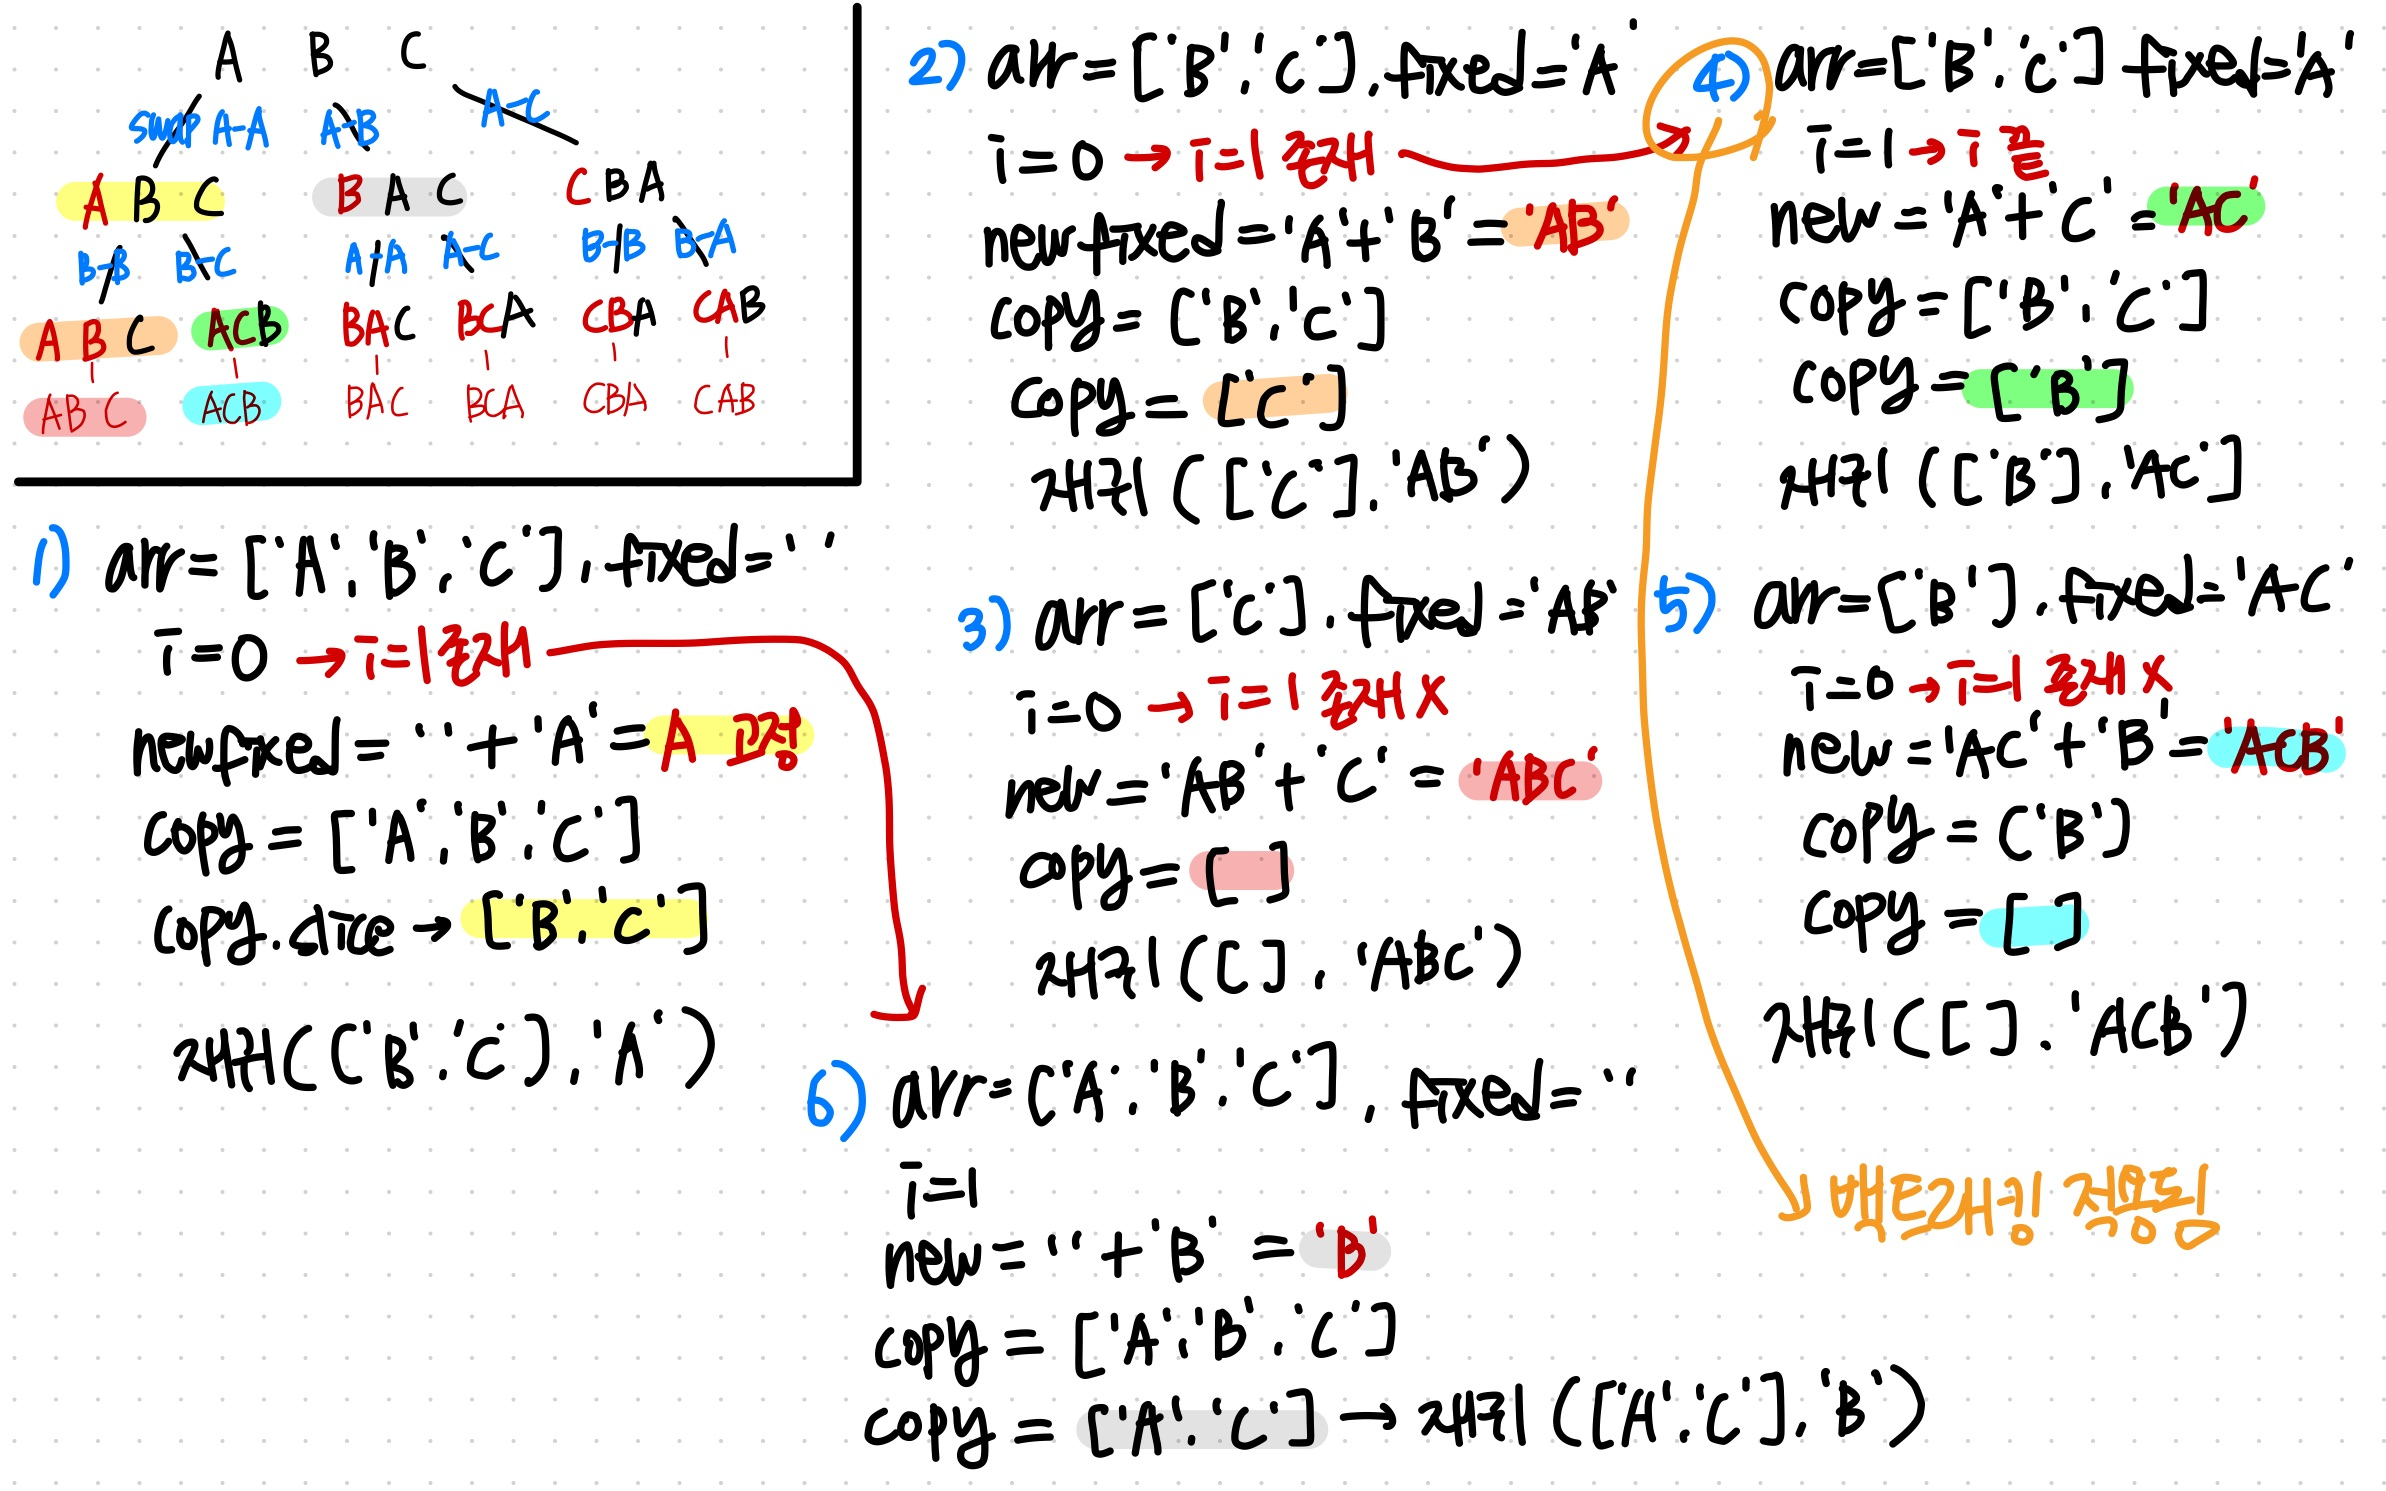 A B C
swap A-A A-B A-C
A B C B A C C B A
B-B B-C A-A A-C B-B B-A
A B C ACB BAC BCA CBA CAB
ABC ACB BAC BCA CBA CAB
1) arr = ['A', 'B', 'C'], fixed = ''
i=0 → i=1 존재
newfixed = '' + 'A' = A 고정
copy = ['A', 'B', 'C']
copy.slice → ['B', 'C']
재귀(['B', 'C'], 'A')
2) arr = ['B', 'C'], fixed = 'A'
i=0 → i=1 존재
newfixed = 'A' + 'B' = 'AB'
copy = ['B', 'C']
copy = ['C']
재귀(['C'], 'AB')
3) arr = ['C'], fixed = 'AB'
i=0 → i=1 존재 X
new = 'AB' + 'C' = 'ABC'
copy = [ ]
재귀([ ], 'ABC')
4) arr=['B', 'C'] fixed='A'
i=1 → i 끝
new = 'A' + 'C' = 'AC'
copy = ['B', 'C']
copy = ['B']
재귀(['B'], 'AC']
5) arr=['B'], fixed='AC'
i=0 → i=1 존재 X
new = 'AC' + 'B' = 'ACB'
copy = ('B')
copy = [ ]
재귀([ ], 'ACB')
6) arr=['A', 'B', 'C'], fixed = ''
i=1
new = '' + 'B' = 'B'
copy = ['A', 'B', 'C']
copy = ['A', 'C'] → 재귀(['A', 'C'], 'B')
백트래킹 적용됨